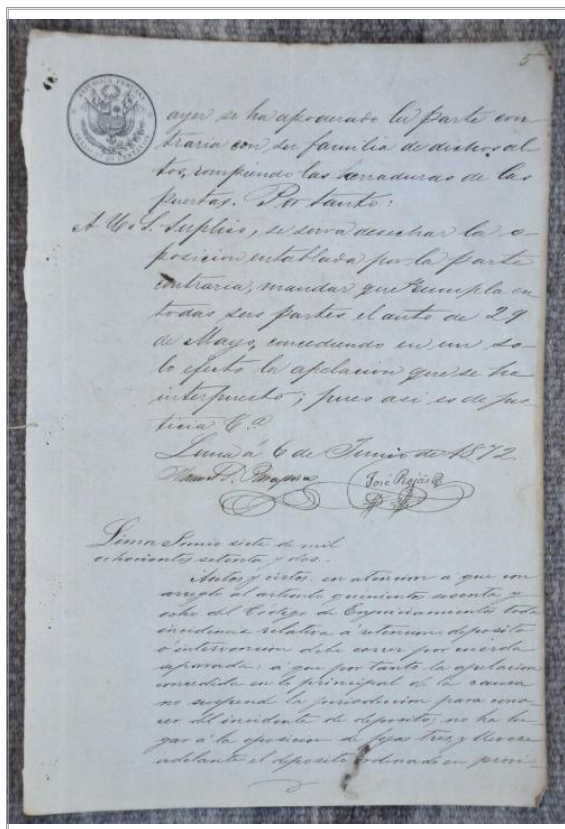 5
REPUBLICA PERUANA
ayer se ha apoderado la parte con
traria con ser familia de dichos al
tos, rompiendo las serraduras de las
puertas. Por tanto:
A U.S. Suplico, se sirva desechar la o-
posicion entablada por la parte
contraria, mandar que se cumpla en
todas sus partes el auto de 29
de Mayo, concediendo en un so-
lo efecto la apelacion que se ha
interpuesto; pues asi es de jus-
ticia &.a
Lima á 6 de Junio de 1872
José Rojas
Lima Junio siete de mil
ochocientos setenta y dos.
Autos y vistos: en atencion a que con
arreglo al articulo quinientos sesenta y
ocho del Código de Enjuiciamientos toda
incidencia relativa á retencion, deposito
o intervencion debe correr por cuerda
separada: á que por tanto la apelacion
concedida en lo principal de la causa
no suspende la jurisdiccion para cono-
cer del incidente de deposito; no ha lu-
gar á la oposicion de fojas tres y llevese
adelante el deposito ordenado en provi-